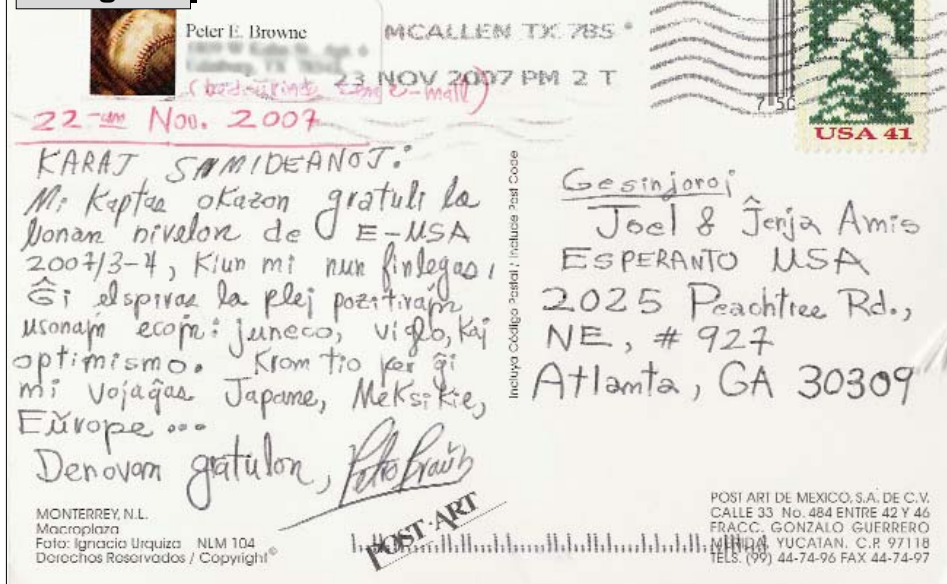 Peter E. Browne
MCALLEN TX 785
23 NOV 2007 PM 2 T
22-an Nov. 2007
USA 41
KARAJ SAMIDEANOJ:
Mi kaptas okazon gratuli la
bonan nivelon de E-USA
2007/3-4, kiun mi nun finlegas,
Ĝi elspiras la plej pozitivajn
usonajn ecojn: juneco, viglo, kaj
optimismo. Krom tio per ĝi
mi vojaĝas Japane, Meksikie,
Eŭrope ...
Denovam gratulon, Petro Braŭn
Incluya Código Postal / Include Post Code
Gesinjoroj
Joel & Ĵenja Amis
ESPERANTO USA
2025 Peachtree Rd.,
NE, # 927
Atlanta, GA 30309
MONTERREY, N.L.
Macroplaza
Foto: Ignacio Urquiza NLM 104
Derechos Reservados / Copyright©
POST·ART
POST ART DE MEXICO, S.A. DE C.V.
CALLE 33 No. 484 ENTRE 42 Y 46
FRACC. GONZALO GUERRERO
MERIDA, YUCATAN. C.P. 97118
TELS. (99) 44-74-96 FAX 44-74-97